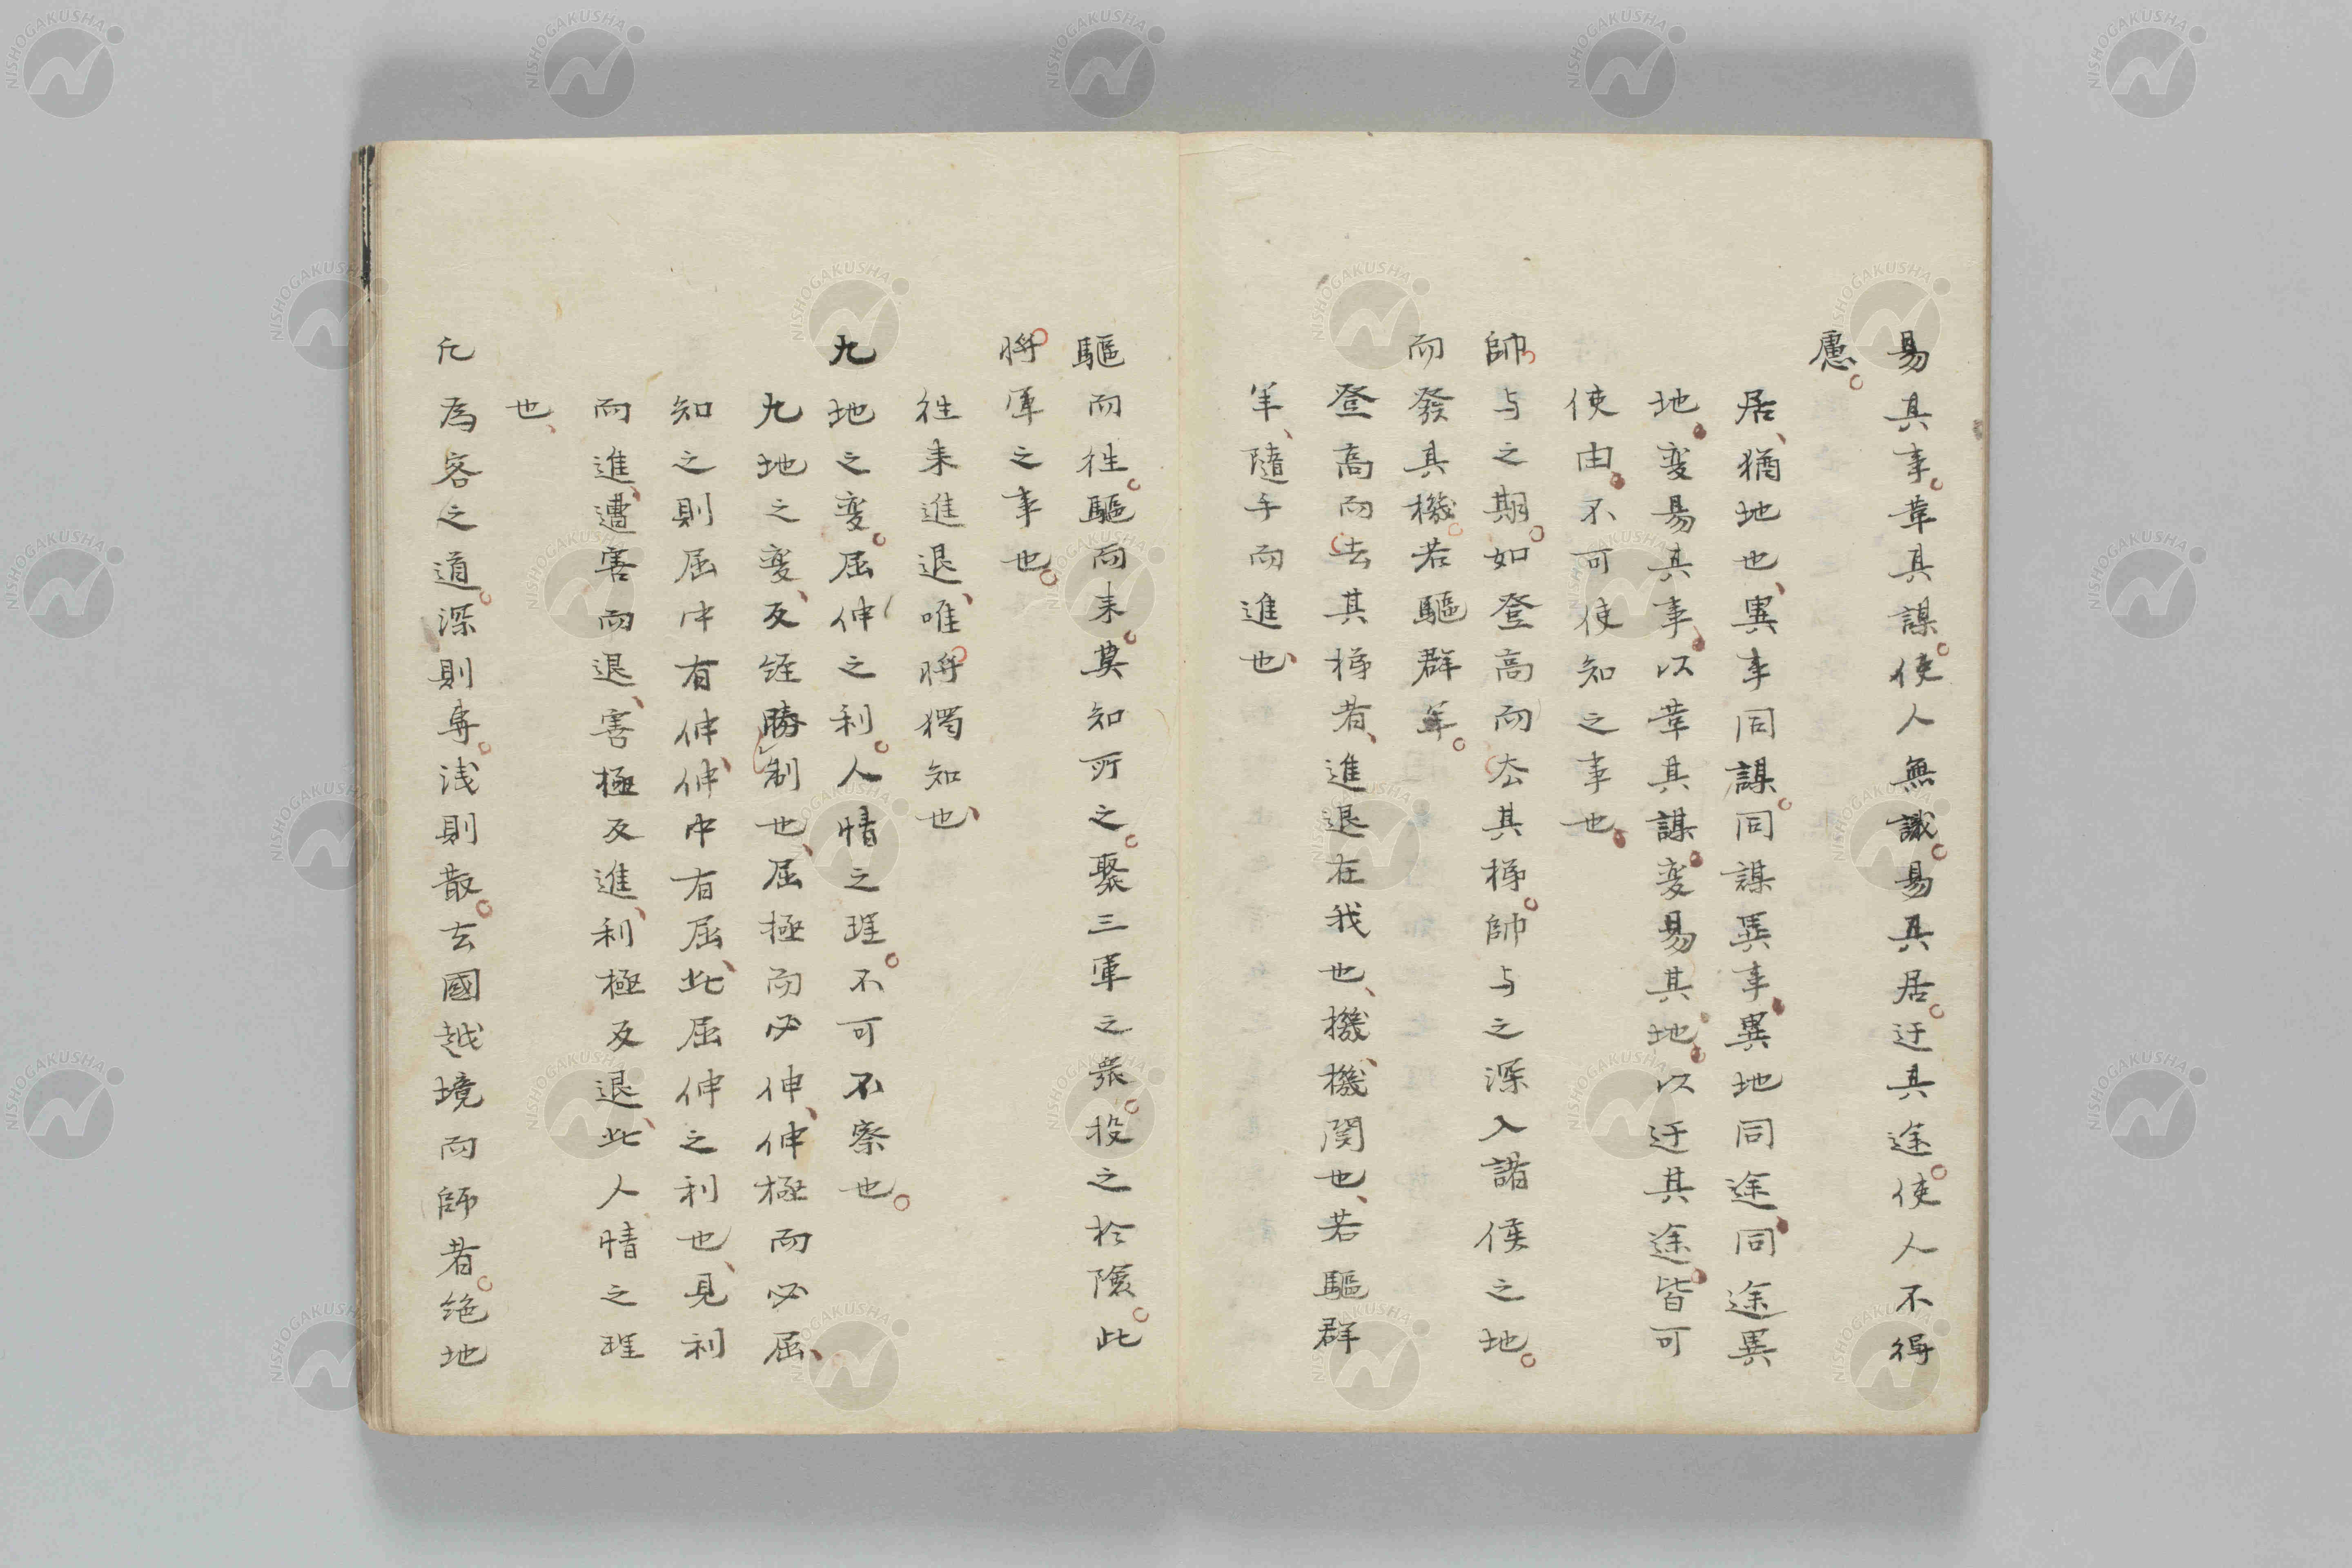 易其事。革其謀。使人無識。易其居。迂其途。使人不得
慮。
居、猶地也、異事同謀。同謀異事、異地同途、同途異
地、変易其事、以革其謀、変易其地、以迂其途、皆可
使由、不可使知之事也、
帥与之期。如登高而去其梯。帥与之深入諸侯之地。
而發其機。若驅群羊。
登高而去其梯者、進退在我也、機、機関也、若驅群
羊、随手而進也、
驅而往。驅而来。莫知所之。聚三軍之衆。投之於険。此
将軍之事也。
往来進退、唯将獨知也、
九地之変。屈伸之利。人情之理。不可不察也。
九地之変、反経勝制也、屈極而必伸、伸極而必屈、
知之則屈中有伸、伸中有屈、此屈伸之利也、見利
而進、遭害而退、害極反進、利極反退、此人情之理
也、
凡為客之道。深則専。浅則散。去國越境而師者。絶地
NISHOGAKUSHA